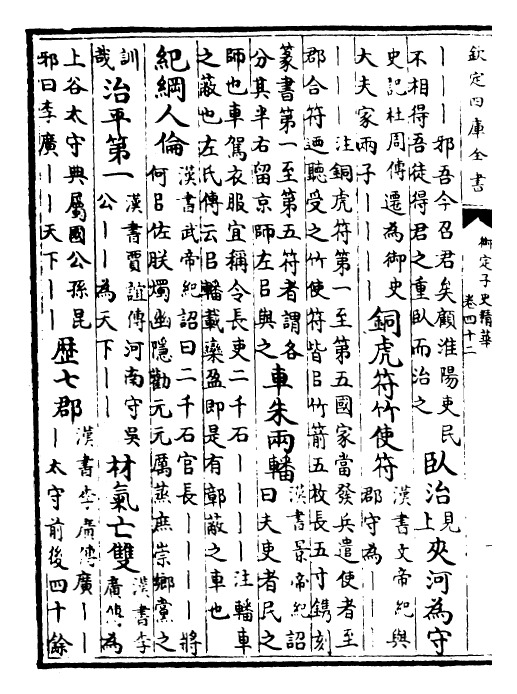 欽定四庫全書
御定子史精華
卷四十二
——邪吾今召君矣顧淮陽吏民
不相得吾徒得君之重臥而治之
臥治
見
上
夾河為守
史記杜周傳遷為御史
大夫家兩子————
銅虎符竹使符
漢書文帝紀與
郡守為——
——注銅虎符第一至第五國家當發兵遣使者至
郡合符迺聽受之竹使符皆㠯竹箭五枚長五寸鐫刻
篆書第一至第五符者謂各
分其半右留京師左㠯與之
車朱兩轓
漢書景帝紀詔
曰夫吏者民之
師也車駕衣服宜稱令長吏二千石————注轓車
之蔽也左氏傳云㠯轓載欒盈即是有鄣蔽之車也
紀綱人倫
漢書武帝紀詔曰二千石官長————將
何㠯佐朕燭幽隱勸元元厲蒸庶崇鄉黨之
訓
哉
治平第一
漢書賈誼傳河南守吳
公——為天下——
材氣亡雙
漢書李
廣傳為
上谷太守典屬國公孫昆
邪曰李廣——天下——
歴七郡
漢書李廣傳廣——
—太守前後四十餘